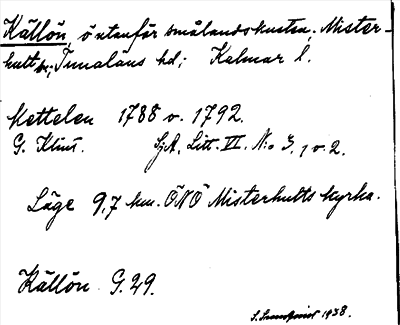 Källön, ö utanför smålandskusten, Mister-
hult sn; Tunaläns hd; Kalmar l.
Kettelen 1788 v. 1792.
G. Klint. SjA. Litt. VI. No 3, 1 v. 2.
Läge 9,7 km. ÖNÖ Misterhults kyrka.
Källön G. 29.
1938.